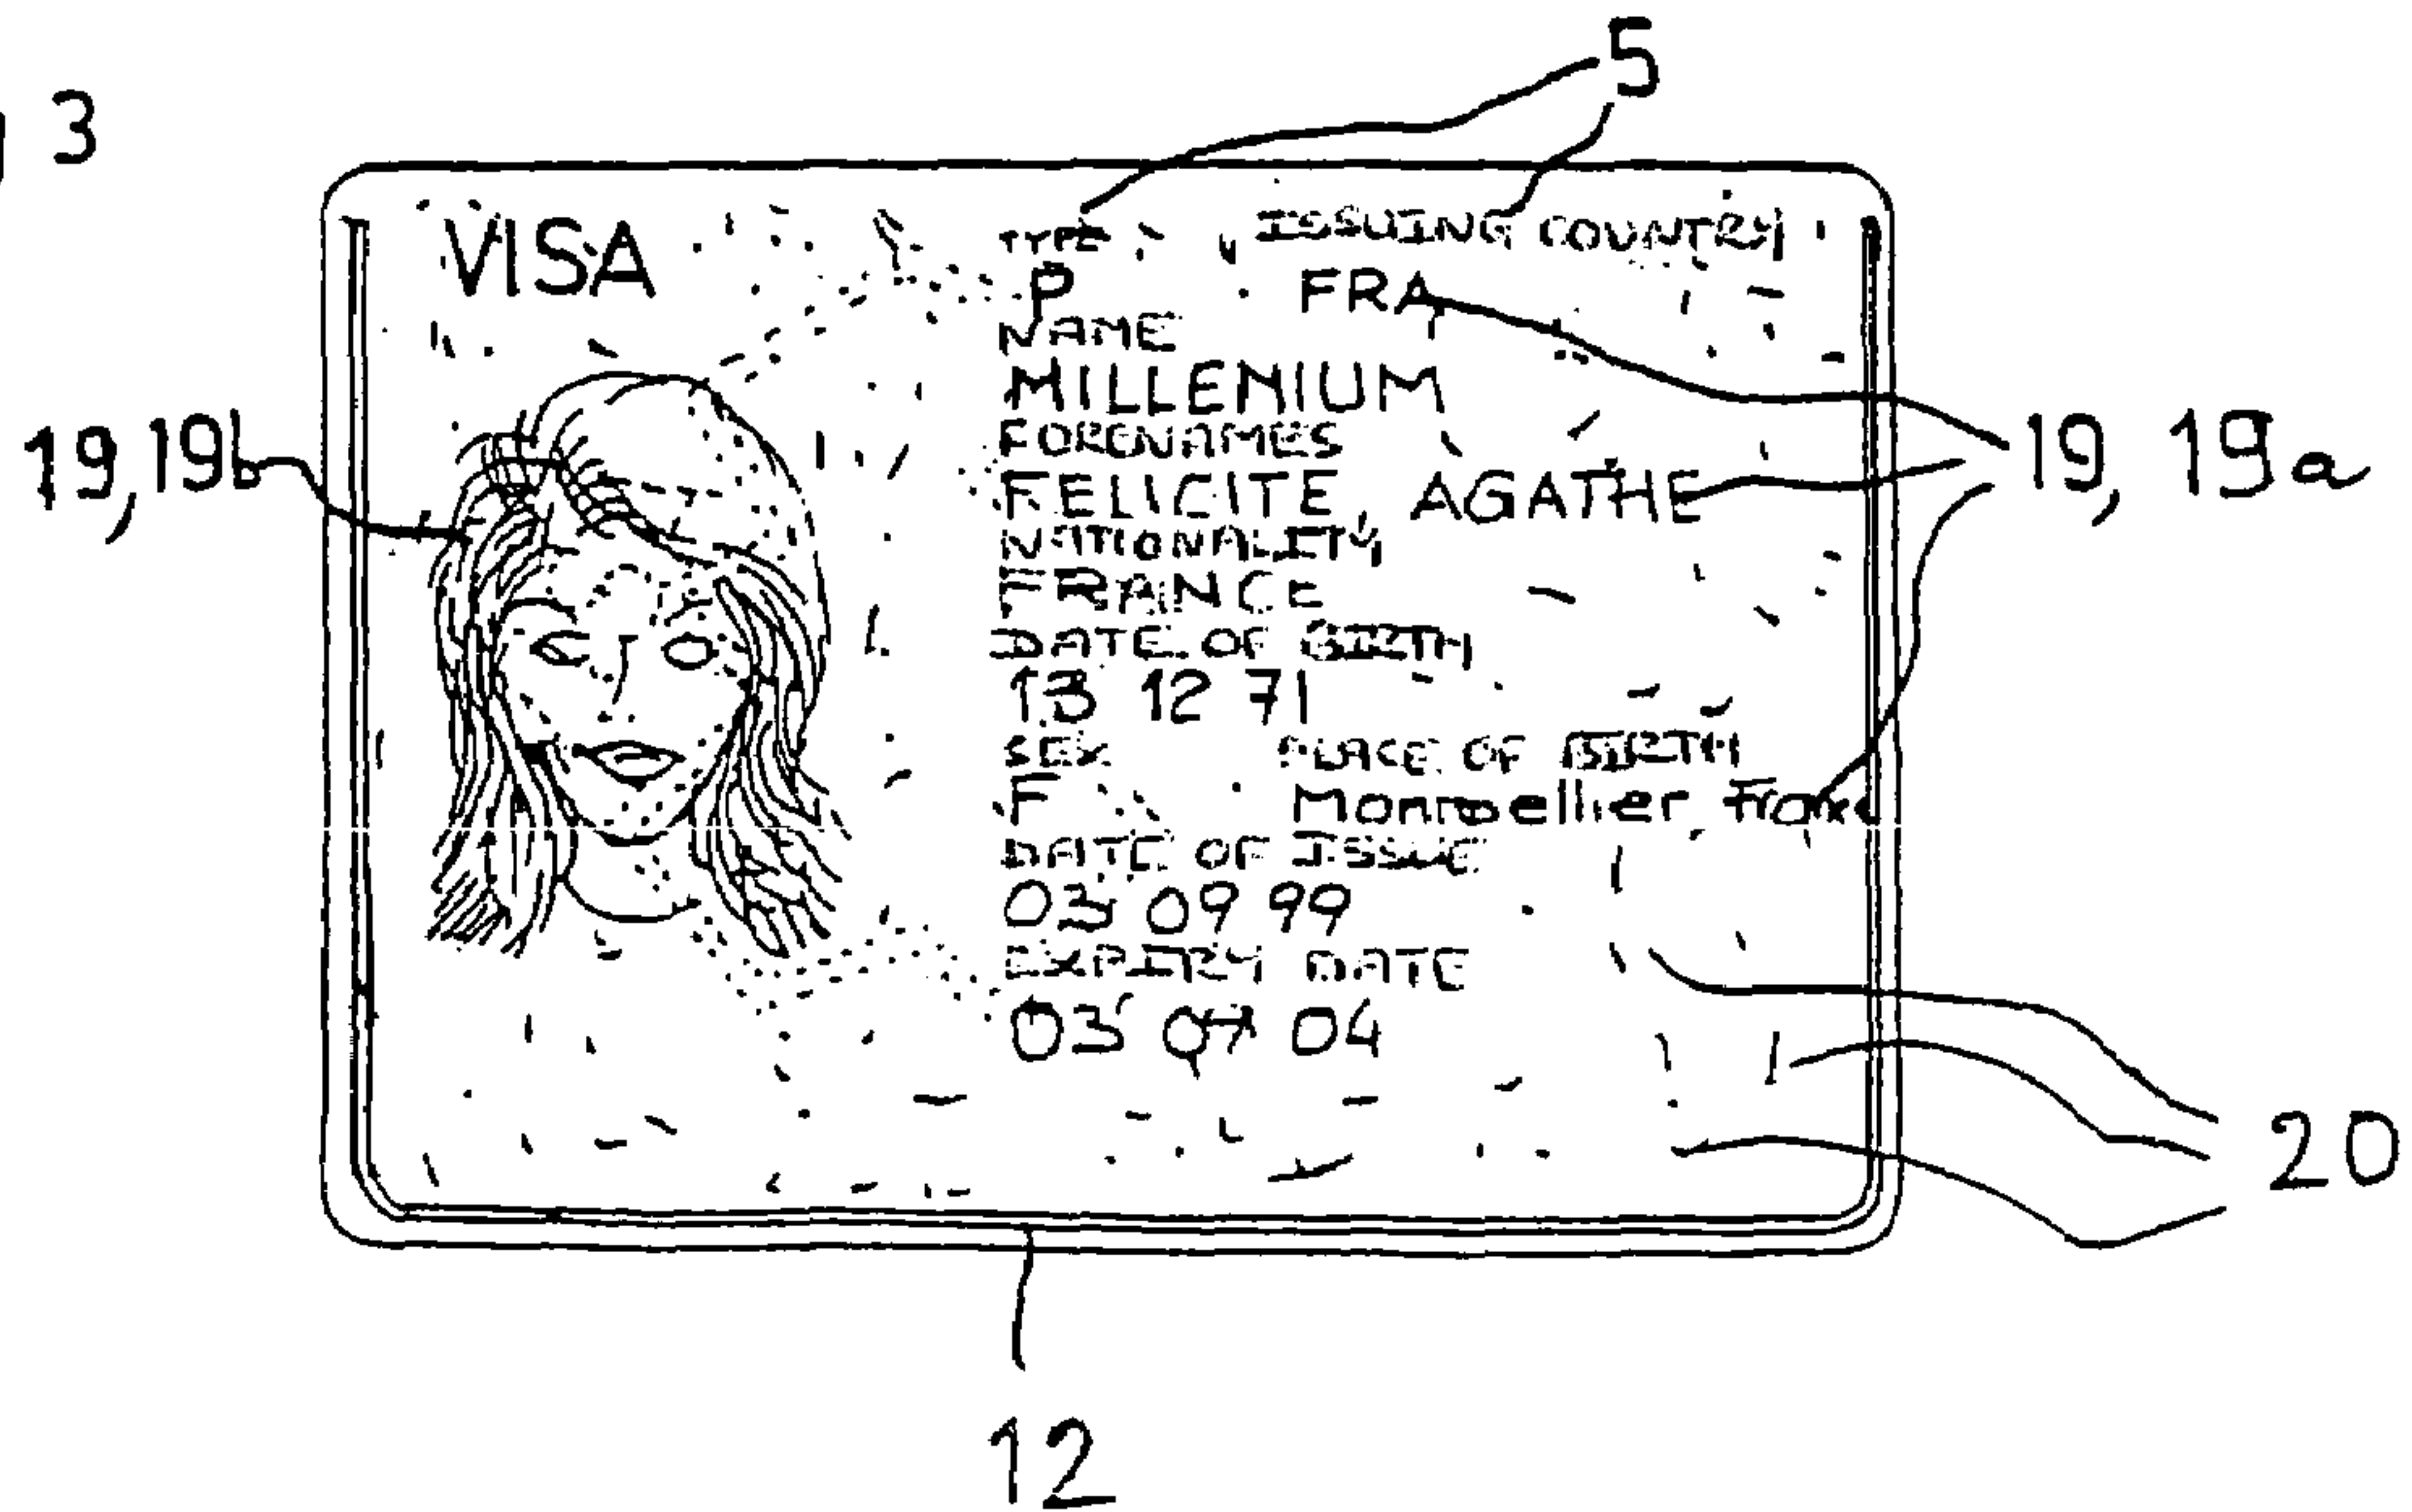 3
5
VISA
TYPE ISSUING COUNTRY
P FRA
NAME
MILLENIUM
FORENAMES
19, 19b
19, 19a
FELICITE, AGATHE
NATIONALITY
FRANCE
DATE OF BIRTH
13 12 71
SEX PLACE OF BIRTH
F Montpellier, France
DATE OF ISSUE
03 09 99
EXPIRY DATE
03 04
20
12